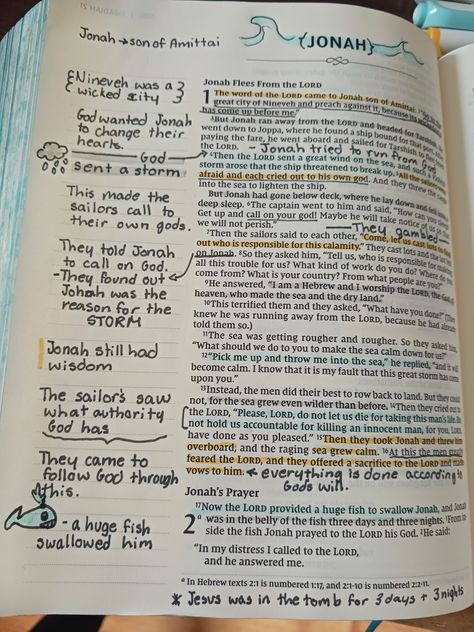 Jonah → son of Amittai
{JONAH}
{Nineveh was a}
wicked city
God wanted Jonah
to change their
hearts.
God
sent a storm
This made the
sailors call to
their own gods.
They told Jonah
to call on God.
-They found out
Jonah was the
reason for the
STORM
Jonah still had
wisdom
The sailor's saw
what authority
God has
They came to
follow God through
this.
- a huge fish
swallowed him
Jonah Flees From the LORD
1 The word of the LORD came to Jonah son of Amittai:
great city of Nineveh and preach against it, because its
has come up before me."
3But Jonah ran away from the LORD and headed for
went down to Joppa, where he found a ship bound for that port.
paying the fare, he went aboard and sailed for Tarshish to
the LORD. - Jonah tried to run from God
4Then the LORD sent a great wind on the sea, and such a
storm arose that the ship threatened to break up. 5All the
afraid and each cried out to his own god. And they threw the
into the sea to lighten the ship.
But Jonah had gone below deck, where he lay down and fell
deep sleep. 6The captain went to him and said, "How can you
Get up and call on your god! Maybe he will take notice of us
we will not perish." They gambled
7Then the sailors said to each other, "Come, let us cast lots
out who is responsible for this calamity." They cast lots and the lot
on Jonah. 8So they asked him, "Tell us, who is responsible for
all this trouble for us? What kind of work do you do? Where do
come from? What is your country? From what people are you?"
9He answered, "I am a Hebrew and I worship the LORD, the God of
heaven, who made the sea and the dry land."
10This terrified them and they asked, "What have you done?" (They
knew he was running away from the LORD, because he had already
told them so.)
11The sea was getting rougher and rougher. So they asked him,
"What should we do to you to make the sea calm down for us?"
12"Pick me up and throw me into the sea," he replied, "and it will
become calm. I know that it is my fault that this great storm has come
upon you."
13Instead, the men did their best to row back to land. But they could
not, for the sea grew even wilder than before. 14Then they cried out to
the LORD, "Please, LORD, do not let us die for taking this man's life. Do
not hold us accountable for killing an innocent man, for you, LORD,
have done as you pleased." 15Then they took Jonah and threw him
overboard, and the raging sea grew calm. 16At this the men greatly
feared the LORD, and they offered a sacrifice to the LORD and made
vows to him. ← everything is done according to
Gods will.
Jonah's Prayer
17Now the LORD provided a huge fish to swallow Jonah, and Jonah
2 a was in the belly of the fish three days and three nights. 1From in-
side the fish Jonah prayed to the LORD his God. 2He said:
"In my distress I called to the LORD,
and he answered me.
a In Hebrew texts 2:1 is numbered 1:17, and 2:1-10 is numbered 2:2-11.
* Jesus was in the tomb for 3 days + 3 nights